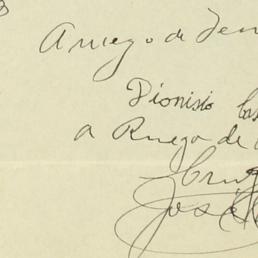 A ruego de
Dionisio
a Ruego de
Cruz
José